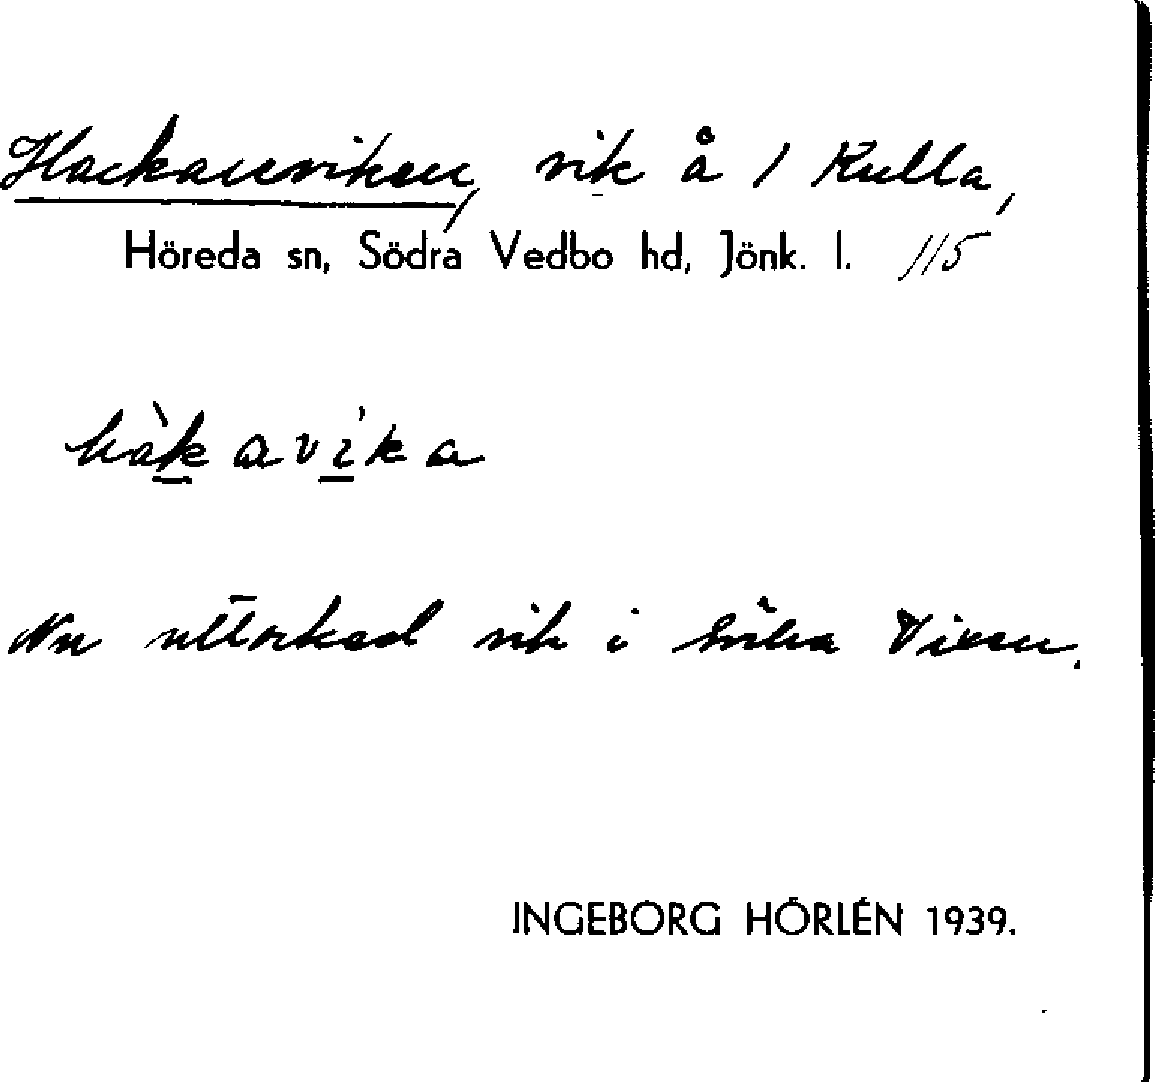 Hackanviken, vik å 1 Kulla,
Höreda sn, Södra Vedbo hd, Jönk. l. 115
hàkavíka
Nu uttorkad vik i Södra Vixen.
INGEBORG HÖRLÉN 1939.